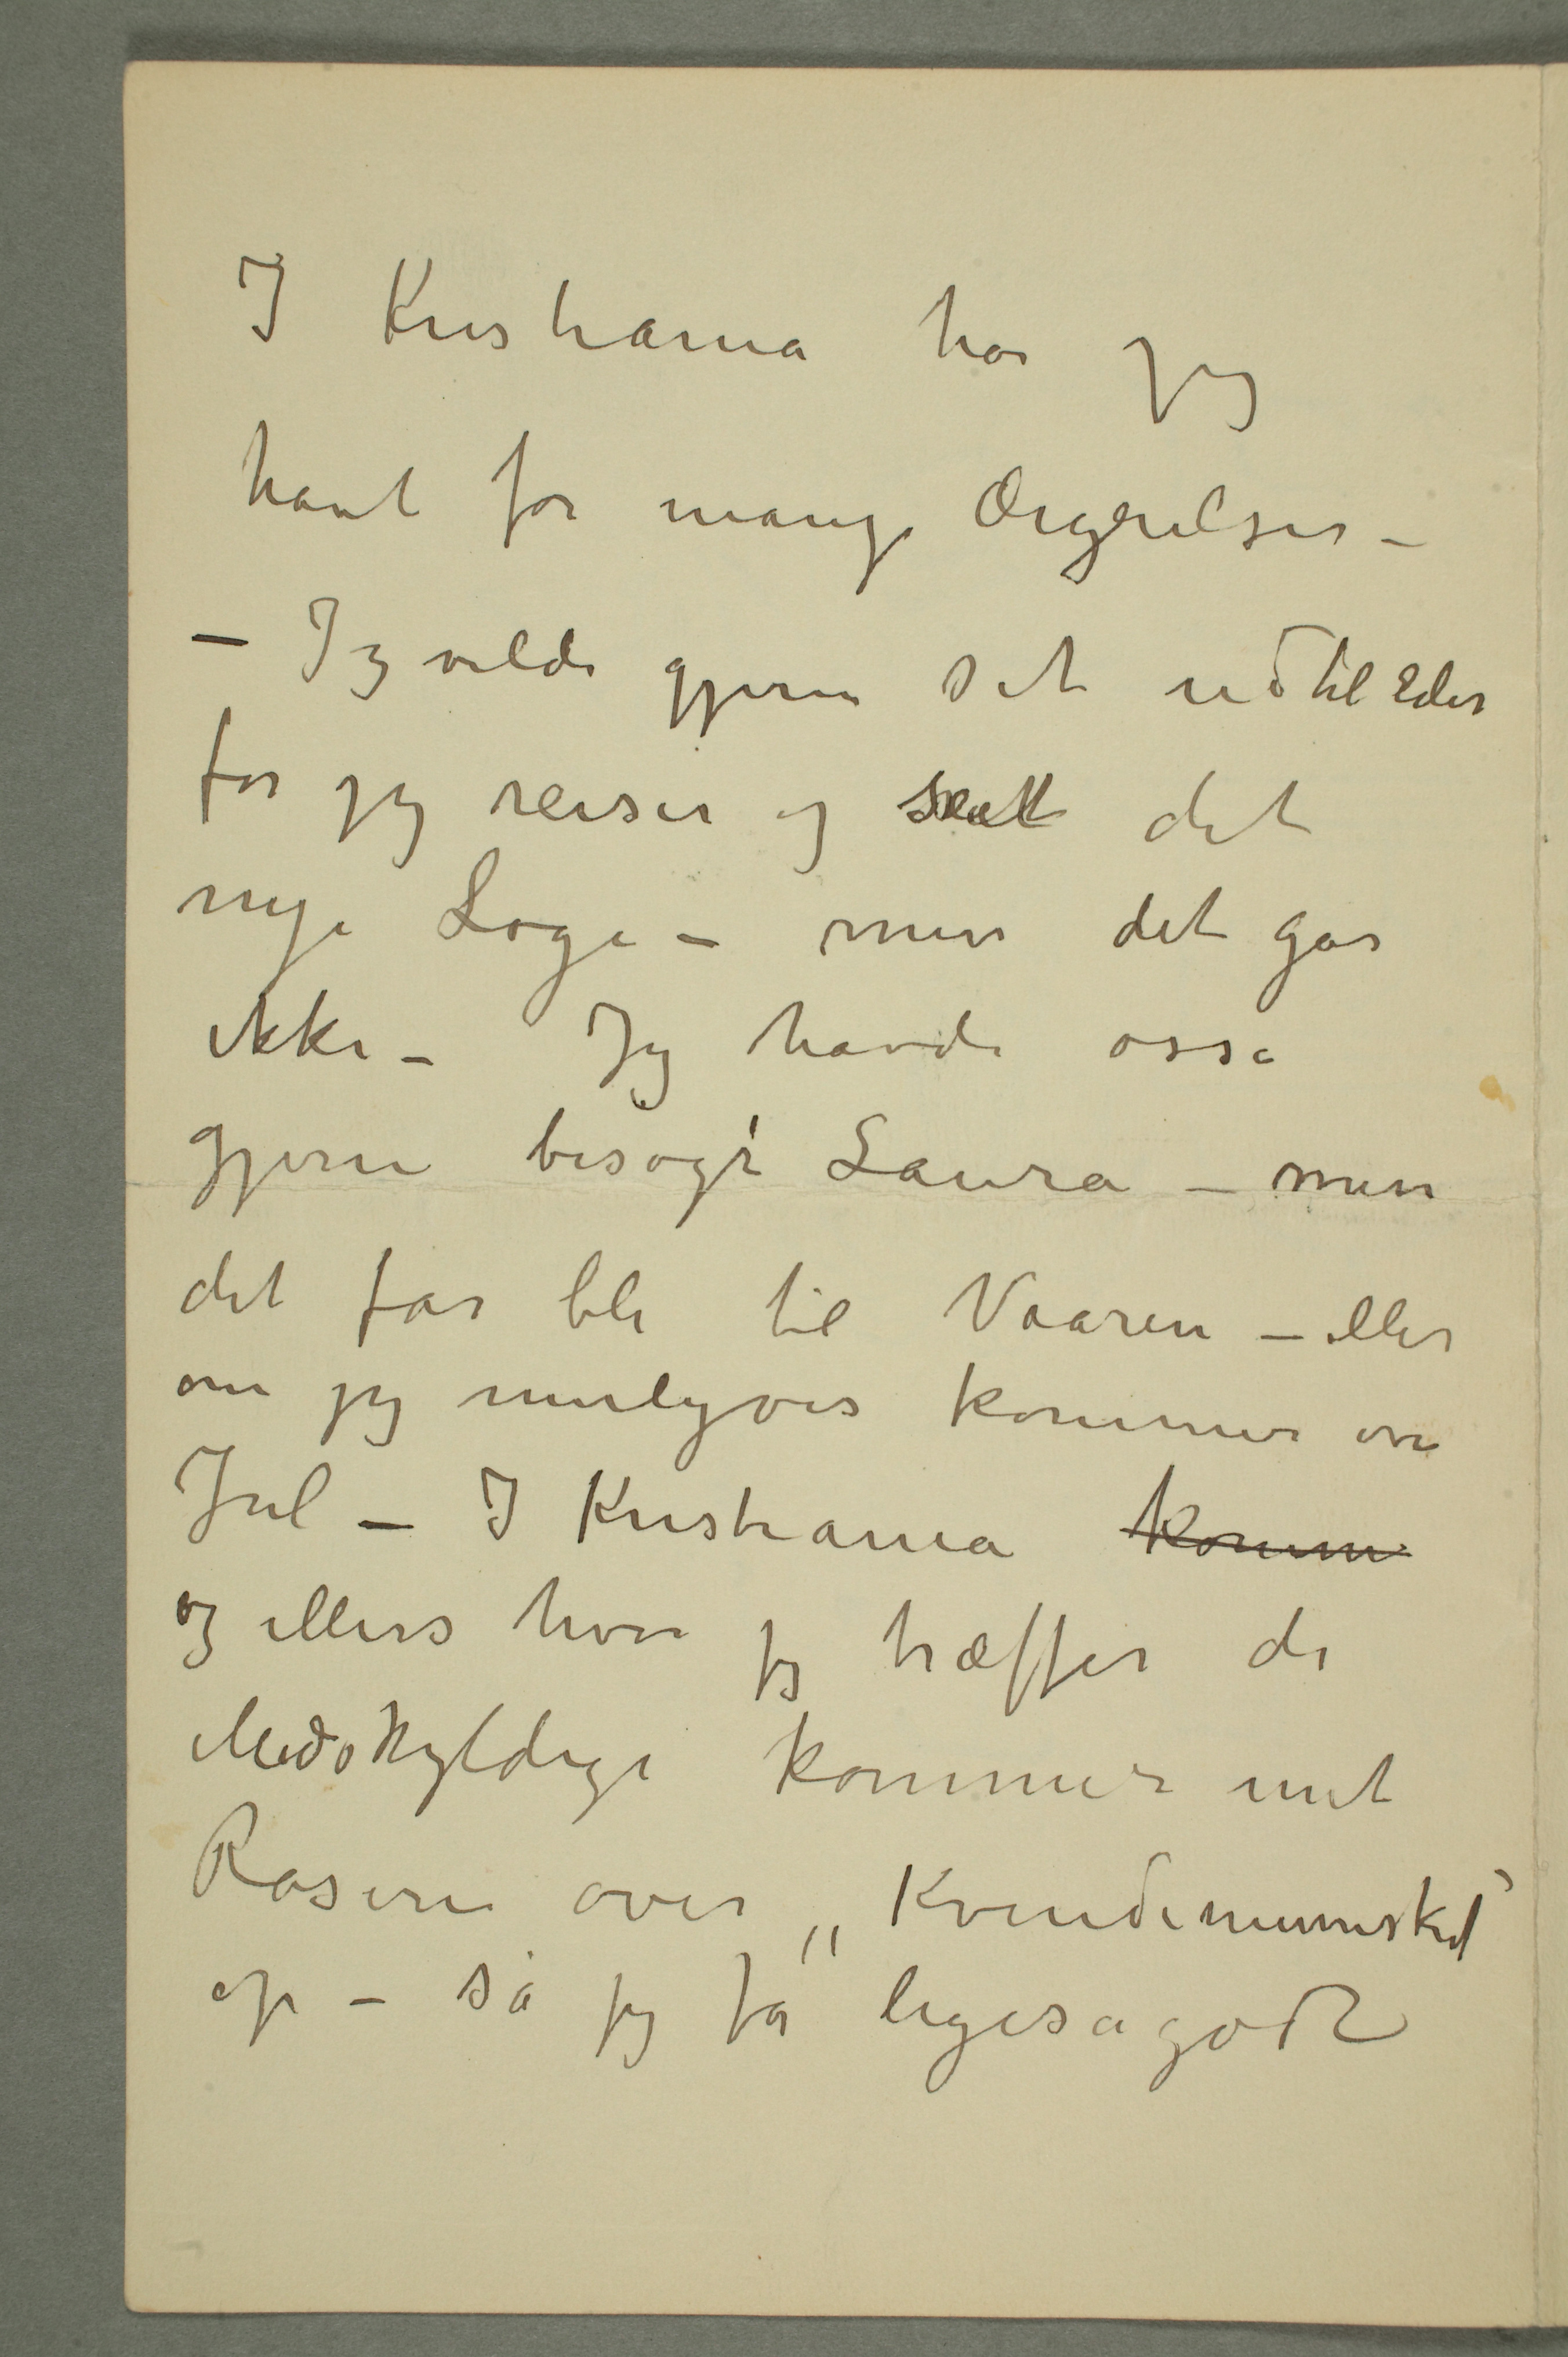 I Kristiania har jeg
havt for mange Ærgrelser –
– Jeg vilde gjerne set ud til Eder
før jeg reiser og seet det
nye Loge – men det gar
ikke – Jeg havde osså
gjerne besøgt Laura – men
det far bli til Vaaren – eller
om jeg muligvis kommer over
Jul – I Kristiania komm
og ellers hvor jeg træffer de
Medskyldige kommer mit
Raseri over „Kvindemennsket”
op – så jeg får ligesagodt